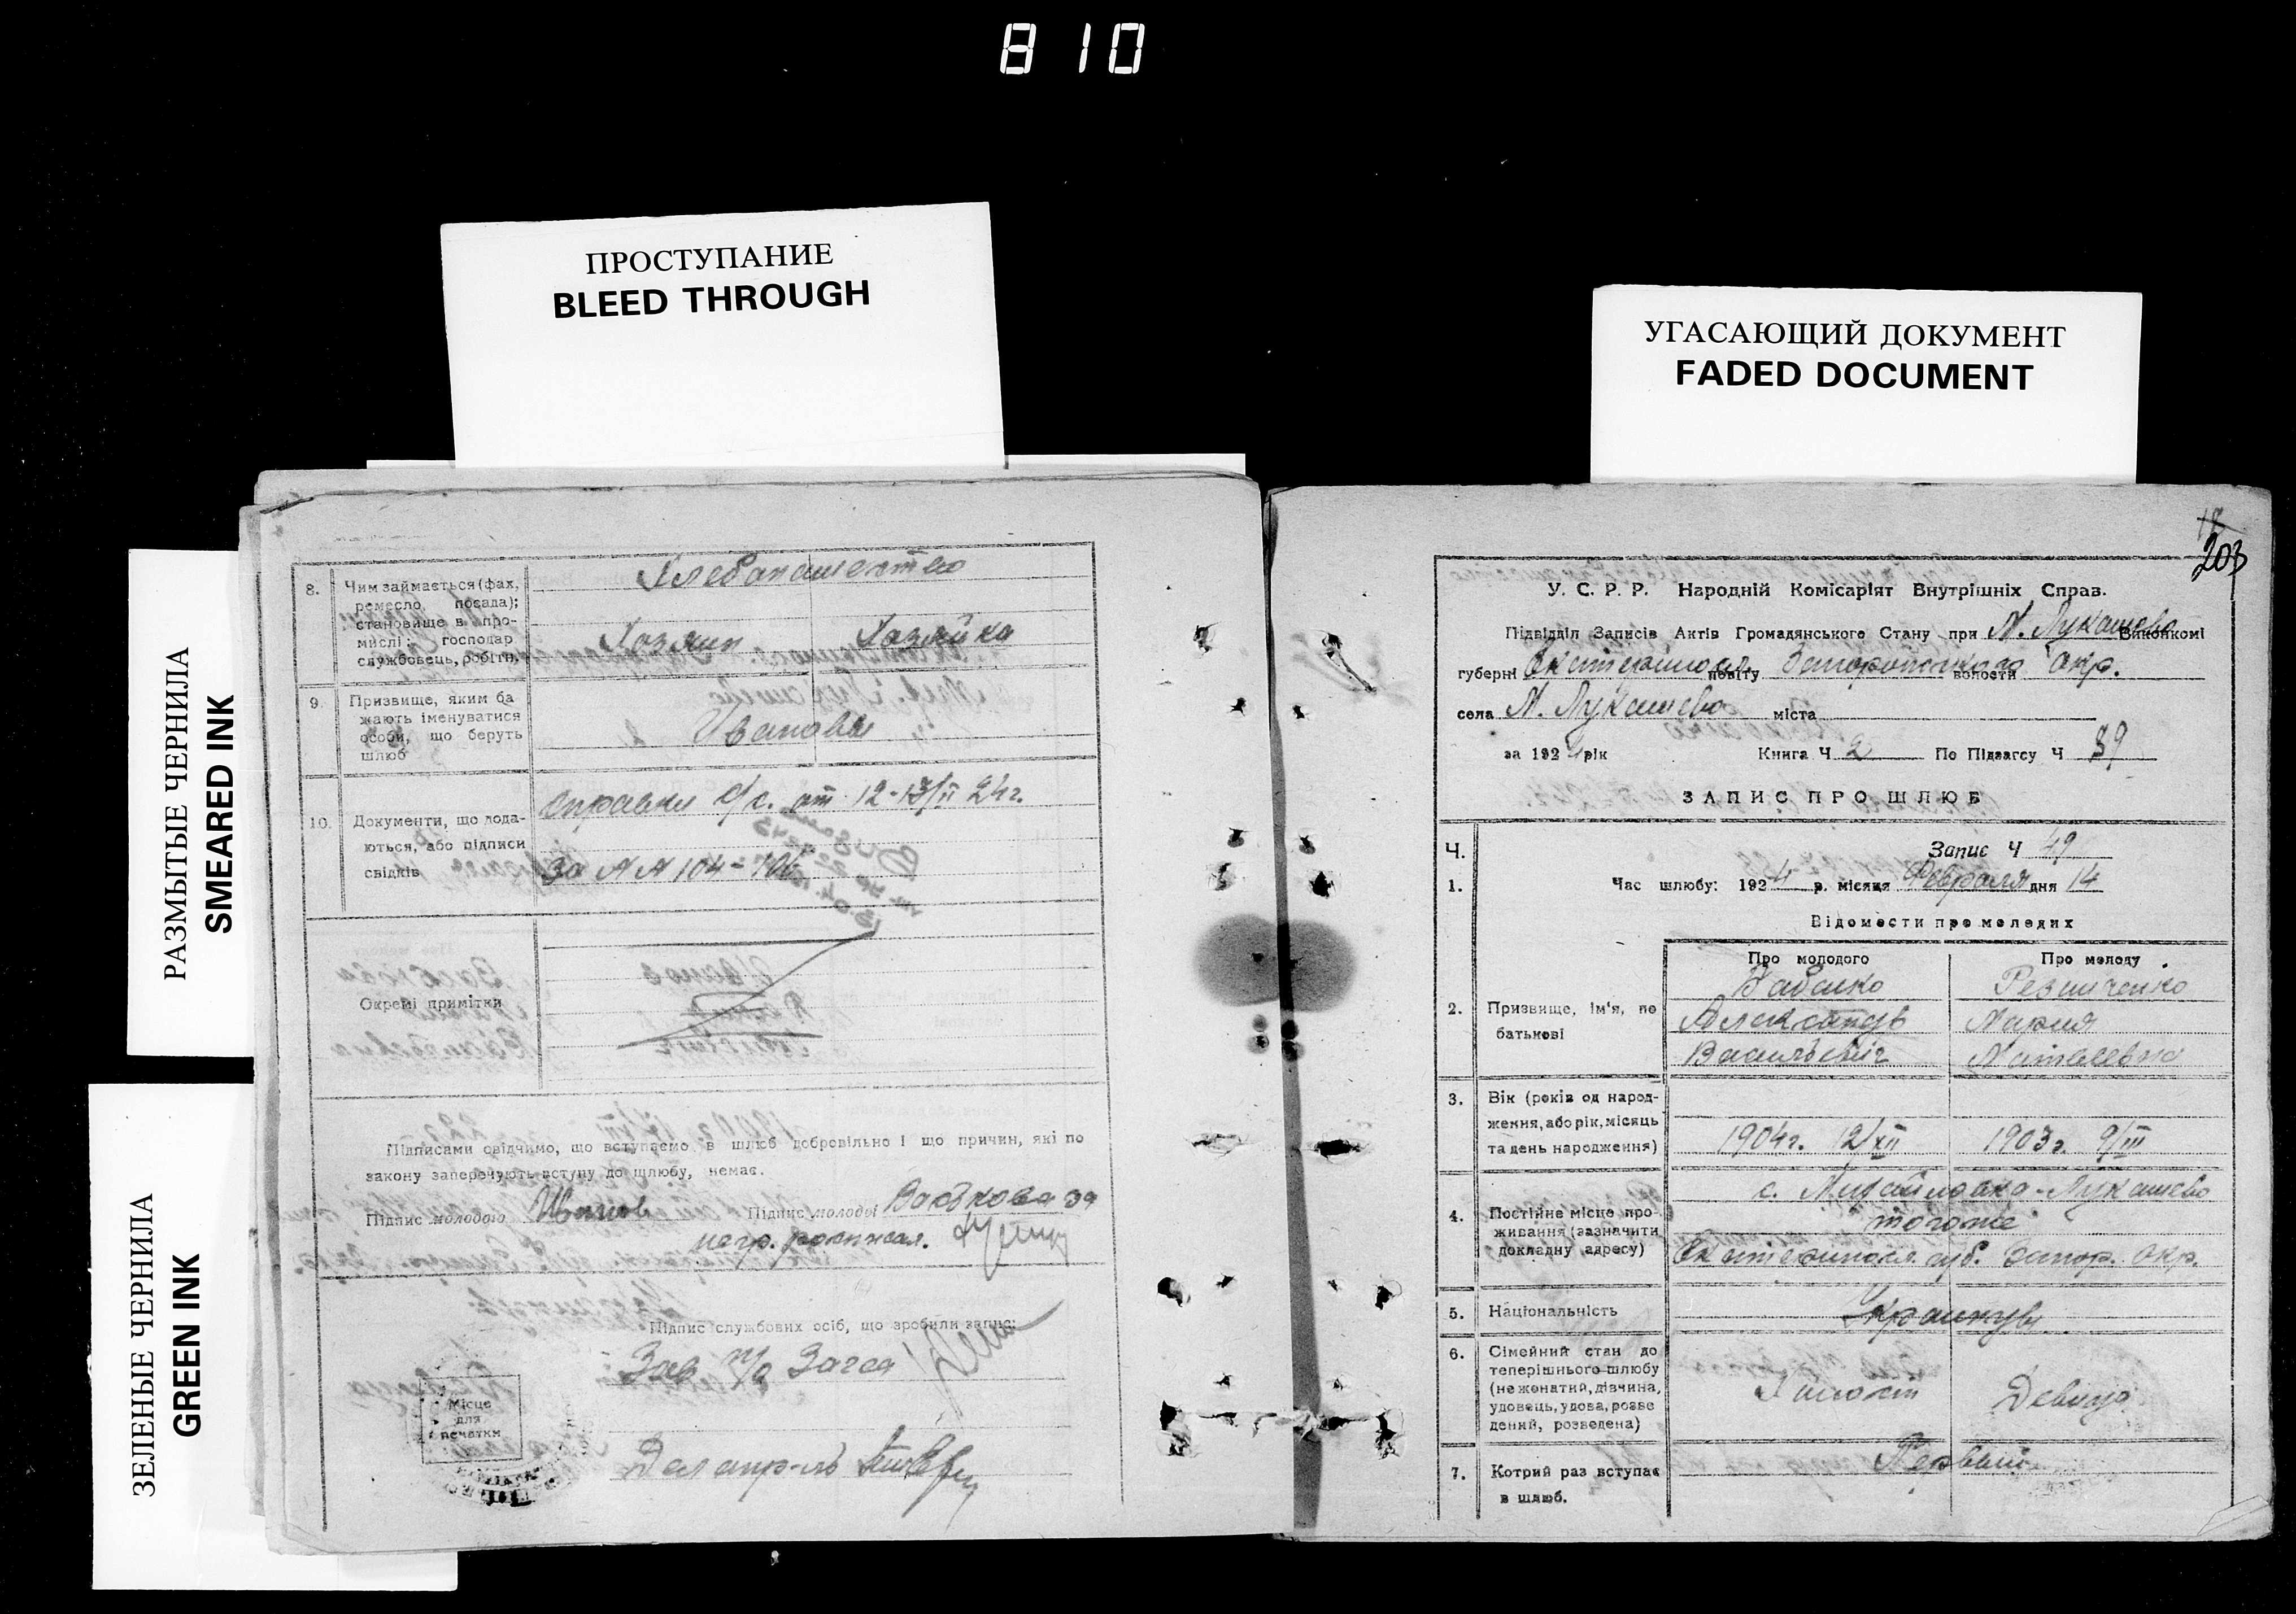 810
ПРОСТУПАНИЕ
BLEED THROUGH
УГАСАЮЩИЙ ДОКУМЕНТ
FADED DOCUMENT
РАЗМЫТЫЕ ЧЕРНИЛА
SMEARED INK
ЗЕЛЕНЫЕ ЧЕРНИЛА
GREEN INK
8. Чим займається (фах, ремесло, посада); становище в промислі: господар службовець, робітн.
Хлебопашество
Хозяин Хозяйка
9. Призвище, яким бажають іменуватися особи, що беруть шлюб
Ивановы
10. Документи, що додаються, або підписи свідків
справки с/с. от 12-13/II 24г.
за №№ 104-106
Окремі примітки
Підписами свідчимо, що вступаємо в шлюб добровільно і що причин, які по
закону заперечують вступу до шлюбу, немає.
Підпис молодою Иванов Підпис молодої за
негр. росписал.
Підпис службових осіб, що зробили запис:
Зав. п/о Загса
Місце
для
печатки
Делопр-ль
18
203
У. С. Р. Р. Народній Комісаріят Внутрішніх Справ.
Підвідділ Записів Актів Громадянського Стану при М. Лукашево Виконкомі
губерні Екатериносл. повіту Запорожского волости Окр.
села М. Лукашево міста
за 1924 рік Книга Ч 2 По Підзагсу Ч 89
ЗАПИС ПРО ШЛЮБ
Ч. Запис Ч 49
1. Час шлюбу: 1924 р. місяця Февраля дня 14
Відомости про молодих
Про молодого Про молоду
2. Призвище, ім'я, по батькові
Бабанко Резниченко
Александр Мария
Васильевич Матвеевна
3. Вік (років од народження, або рік, місяць та день народження)
1904г. 12/XII 1903г. 9/III
4. Постійне місце проживання (зазначити докладну адресу)
с. Михайловка-Лукашево
тогоже
Екатериносл. губ. Запор. Окр.
5. Національність
Украинцы
6. Сімейний стан до теперішнього шлюбу (не жонатий, дівчина, удовець, удова, розведений, розведена)
Холост Девица
7. Котрий раз вступає в шлюб.
Первый